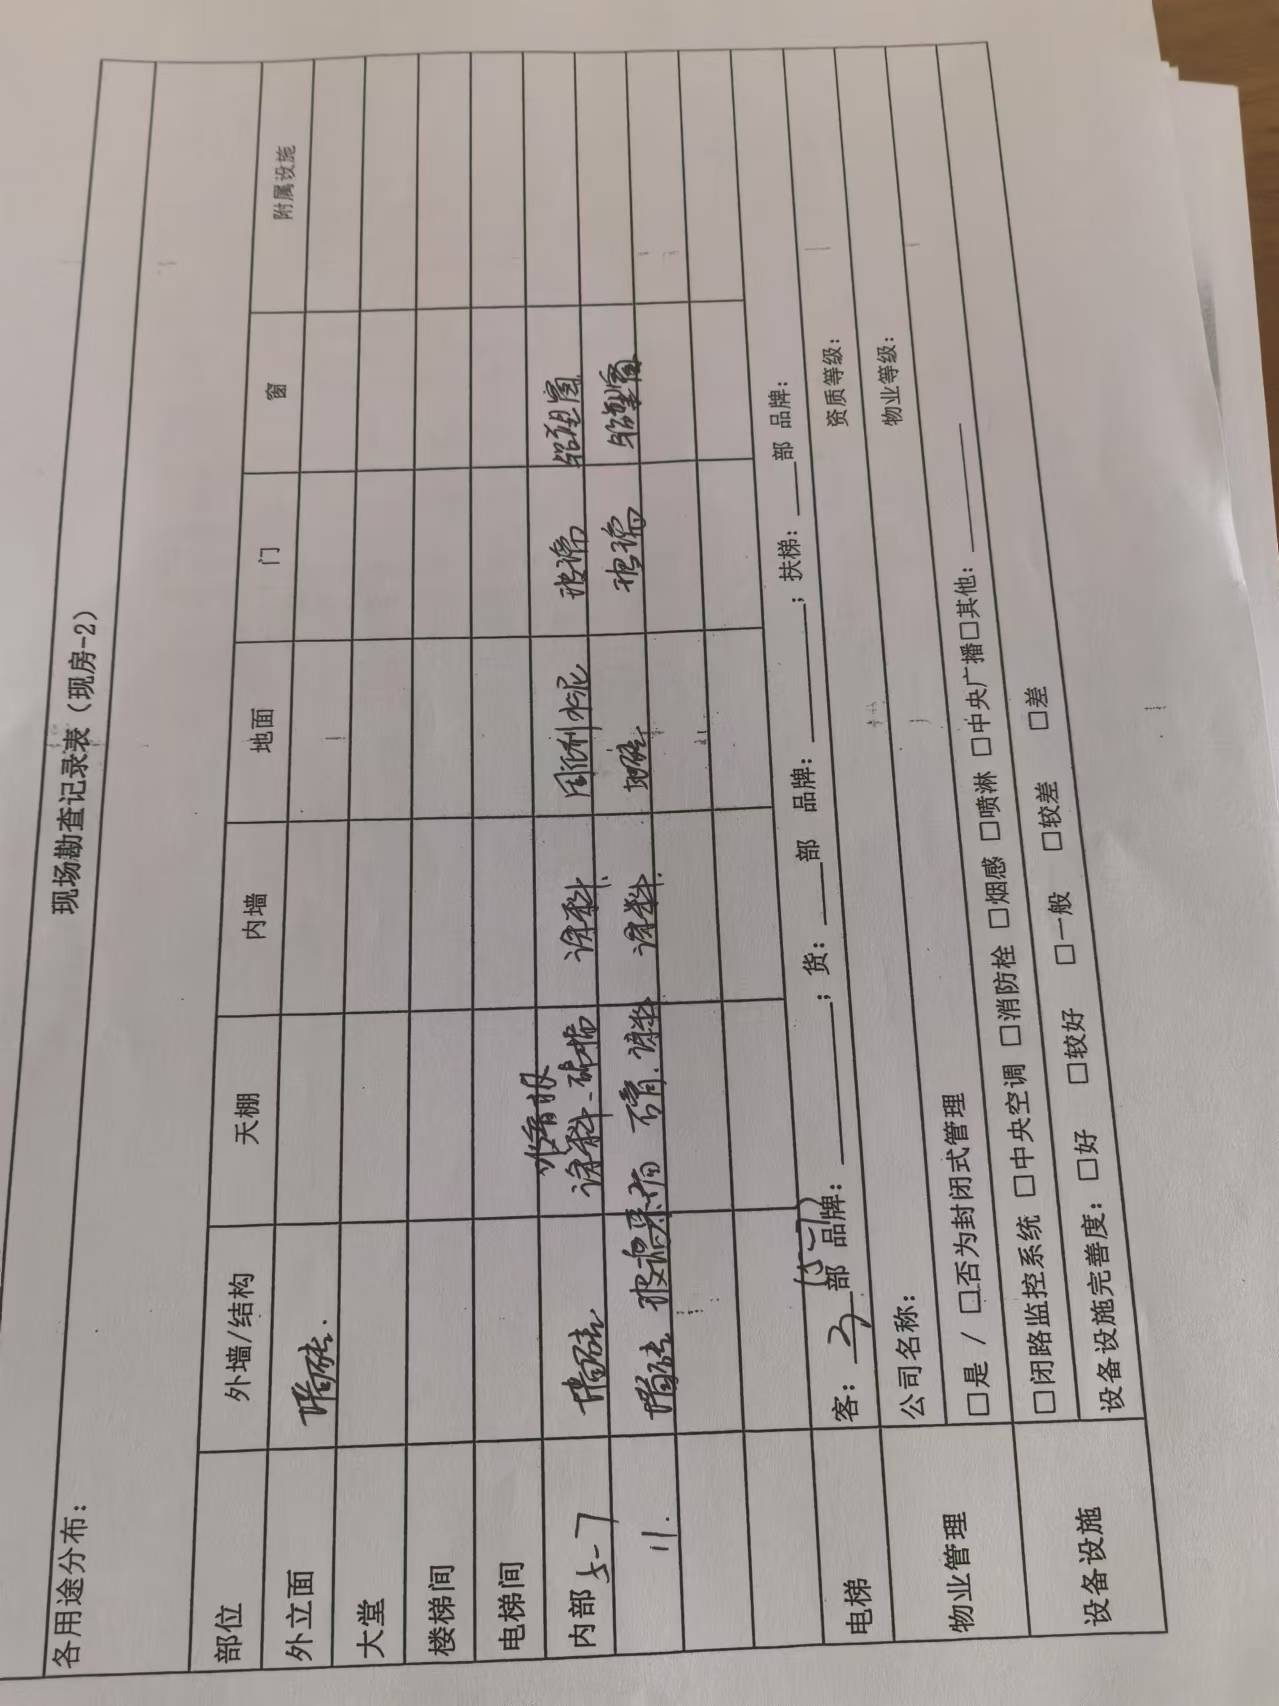 现场勘查记录表（现房-2）
各用途分布：
部位 外墙/结构 天棚 内墙 地面 门 窗 附属设施
外立面 墙砖.
大堂
楼梯间
电梯间
内部 5-7 墙砖 涂料 涂料 水泥 玻璃 铝塑窗
11. 墙砖 玻璃 石膏.涂料 涂料. 地砖 玻璃 铝塑窗
电梯 客：3部 品牌：；货：部 品牌：；扶梯：部 品牌：
(5-7)
物业管理 公司名称： 资质等级：
□是 / □否为封闭式管理 物业等级：
设备设施 □闭路监控系统 □中央空调 □消防栓 □烟感 □喷淋 □中央广播□其他：
设备设施完善度：□好 □较好 □一般 □较差 □差